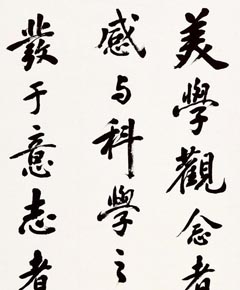 美學觀念者
感与科學之
發于意志者